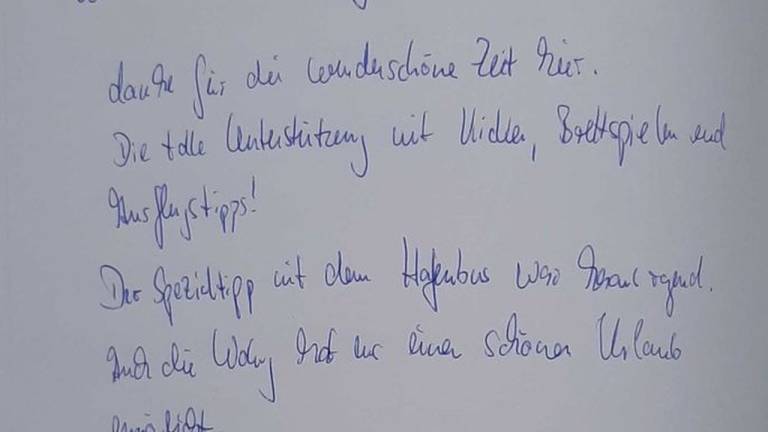 danke für die wunderschöne Zeit hier.
Die tolle Unterstützung mit Kicker, Brettspielen und
Ausflugstipps!
Der Spezialtipp mit dem Hafenbus war herausragend.
Auch die Wohng hat uns einen schönen Urlaub